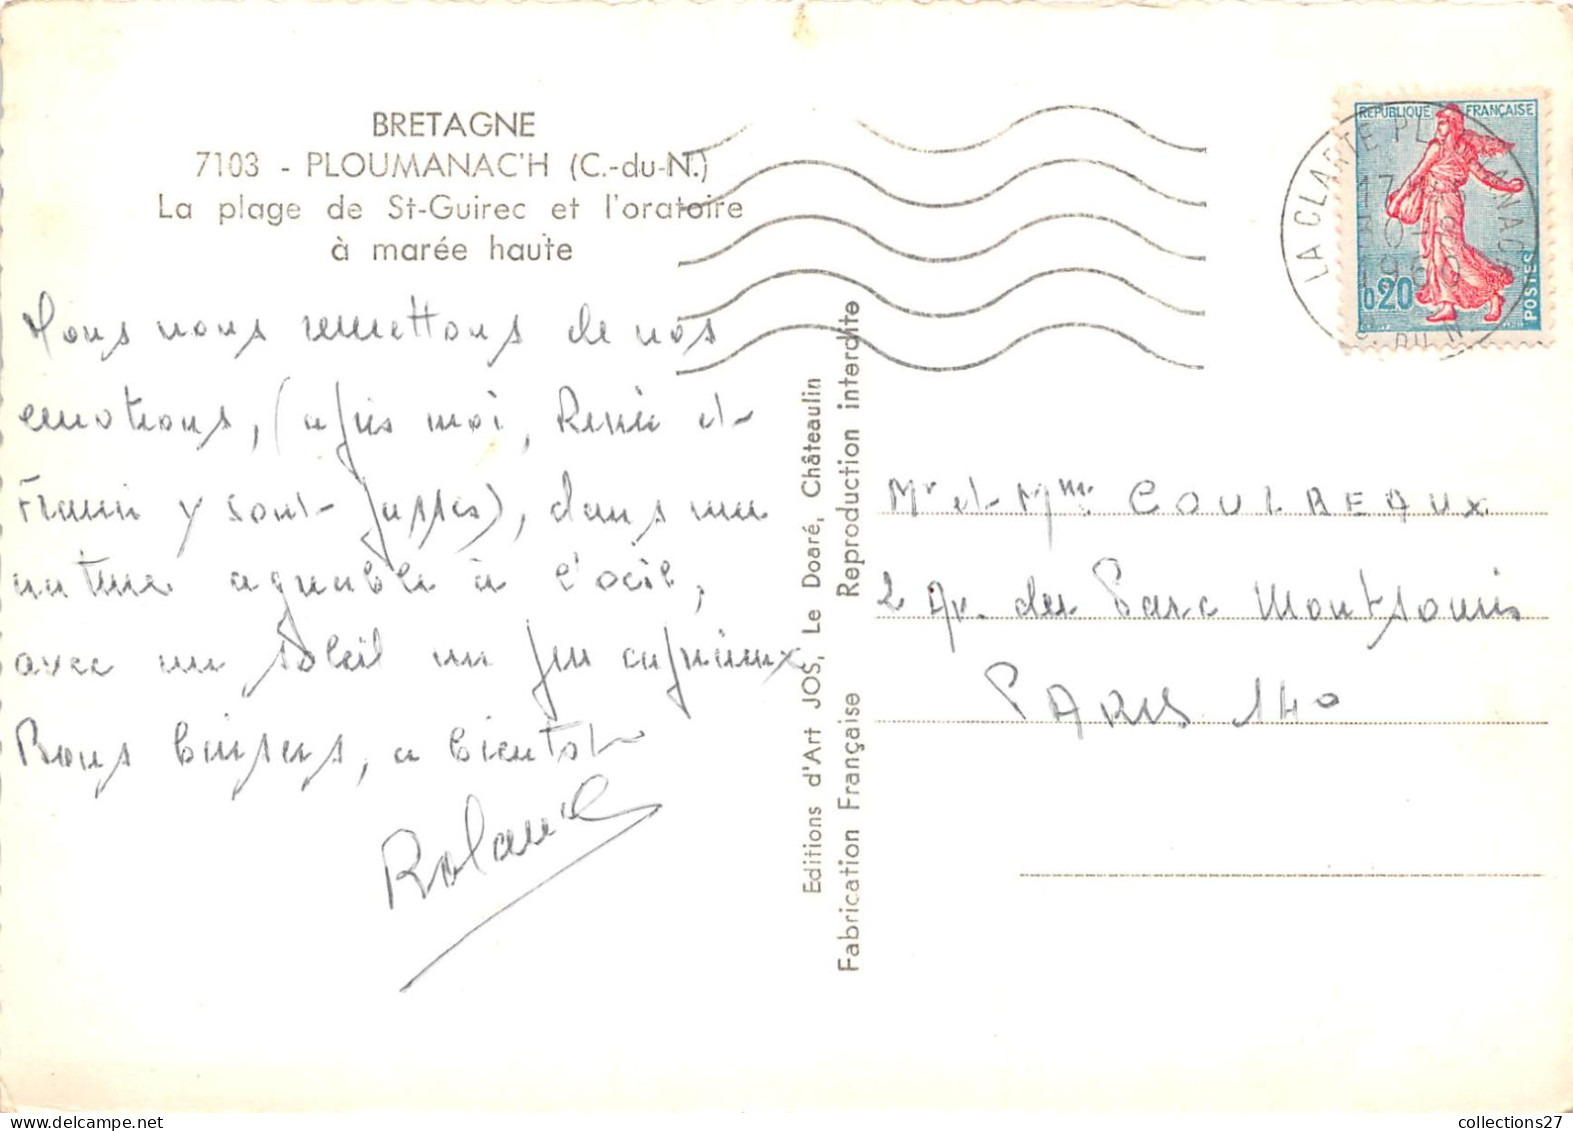 BRETAGNE
7103 - PLOUMANAC'H (C.-du-N.)
La plage de St-Guirec et l'oratoire
à marée haute
Nous nous remettons de nos
émotions, (après moi, Renée et
Francis y sont passés), dans une
nature agréable à l'œil,
avec un soleil un peu capricieux
Bons baisers, a bientot
Roland
Editions d'Art JOS, Le Doaré, Châteaulin
Fabrication Française Reproduction interdite
REPUBLIQUE FRANÇAISE
0,20
POSTES
LA CLARTE PL
17
1960
C. DU N.
Mr et Mme COULBEAUX
2 Av. du Parc Montsouris
PARIS 14o
collections27